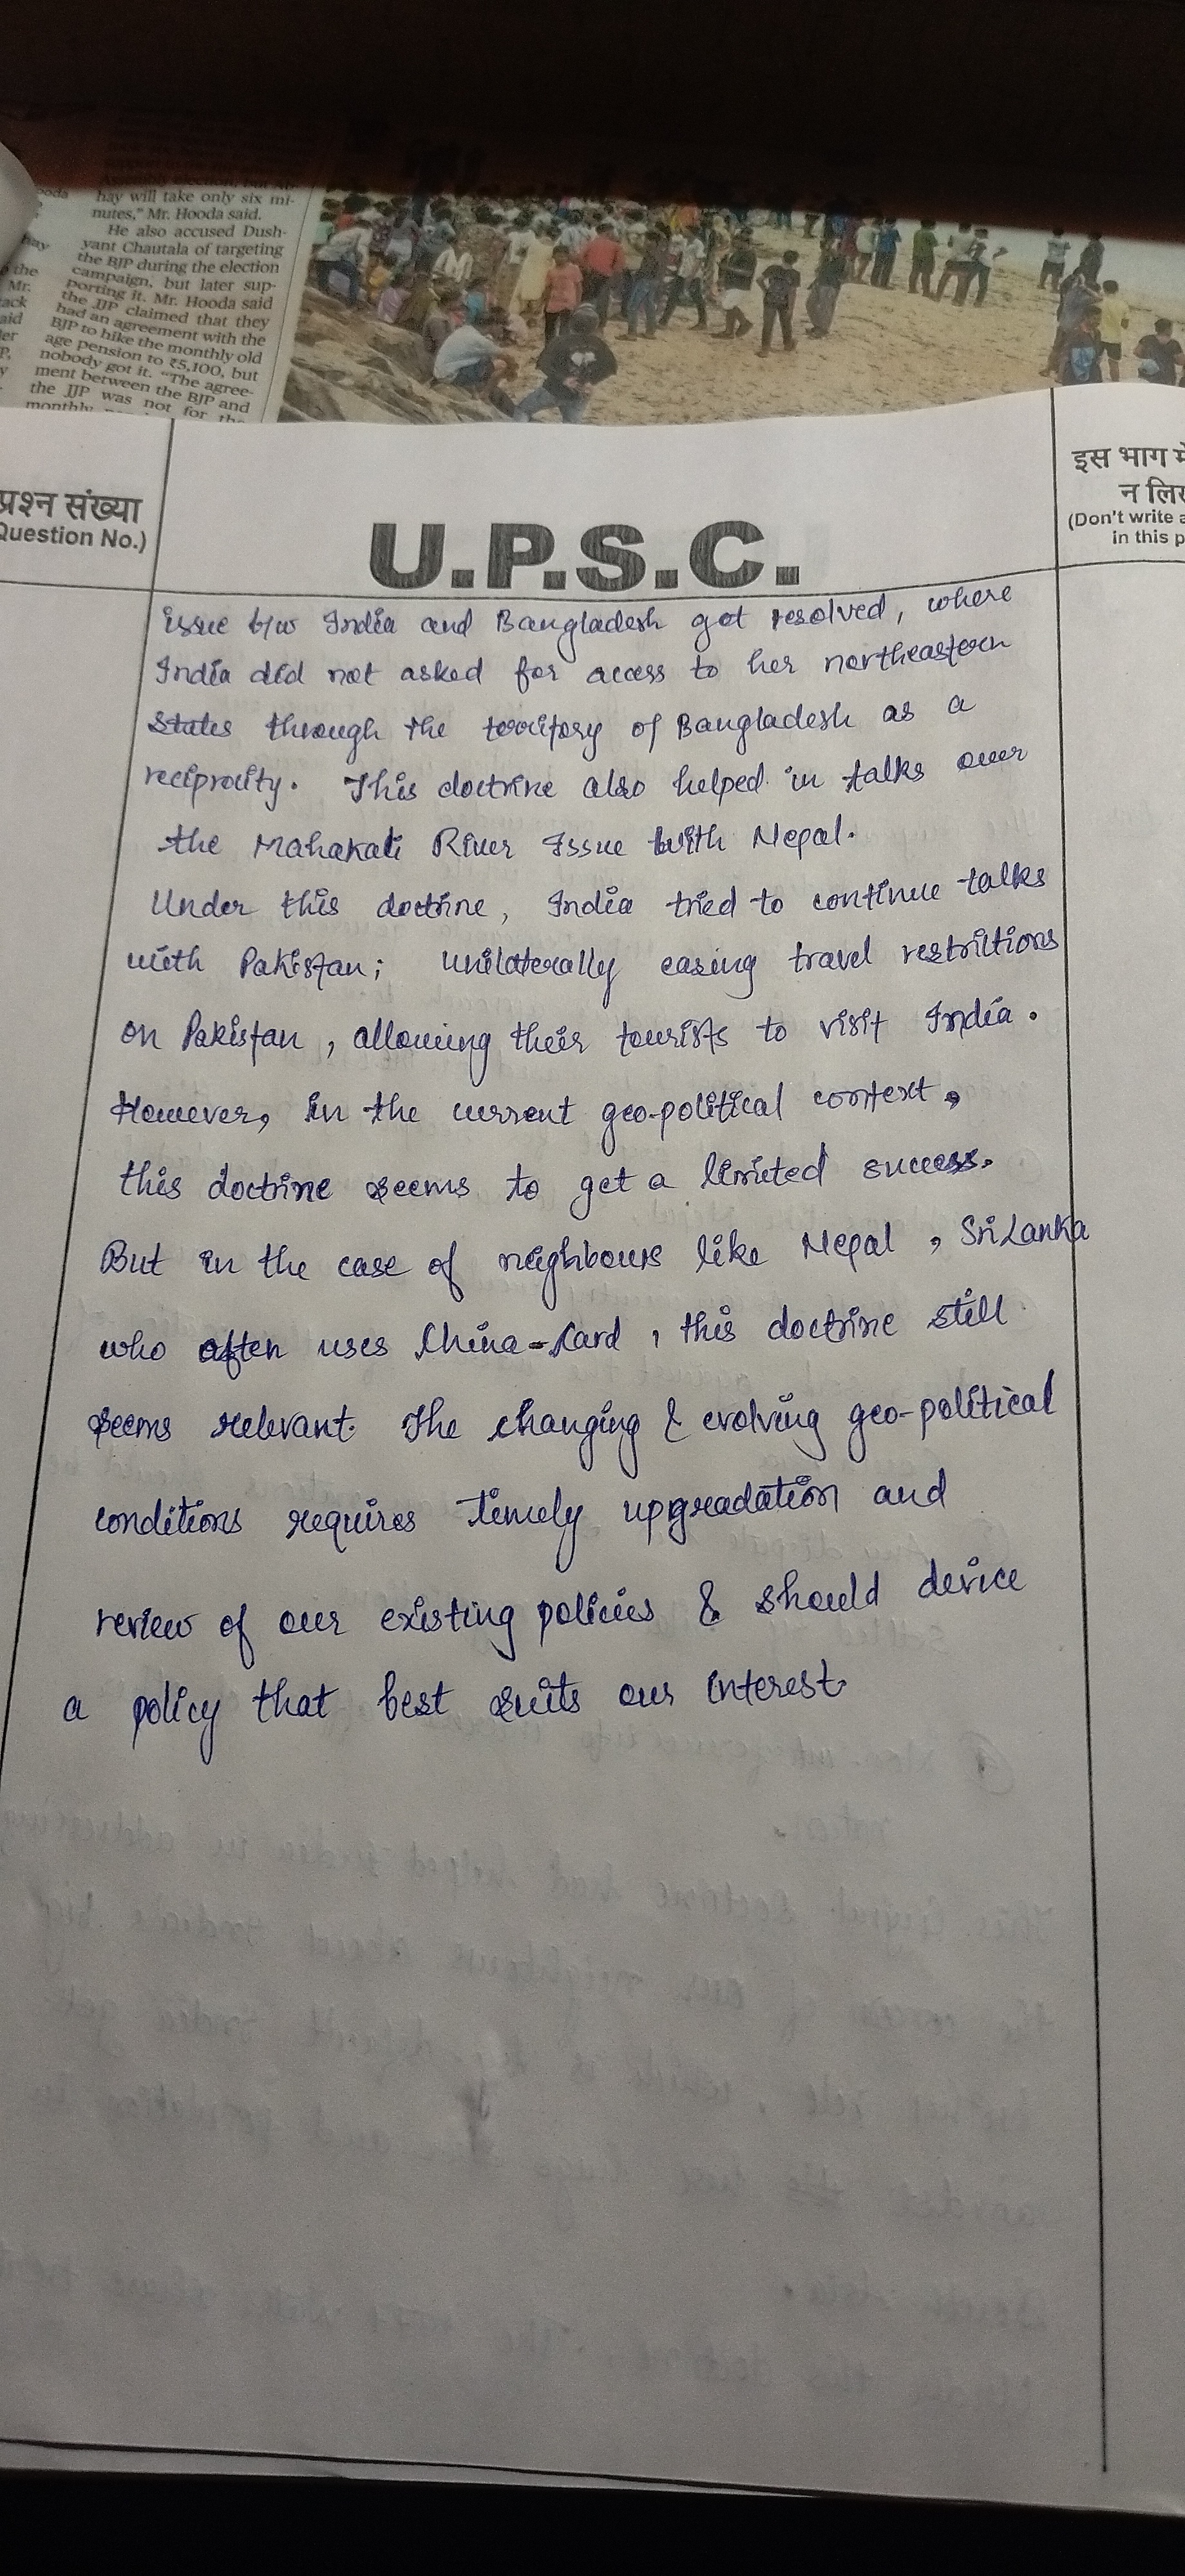 hay will take only six mi-
nutes," Mr. Hooda said.
He also accused Dush-
yant Chautala of targeting
the BJP during the election
campaign, but later sup-
porting it. Mr. Hooda said
the JJP claimed that they
had an agreement with the
BJP to hike the monthly old
age pension to ₹5,100, but
nobody got it. "The agree-
ment between the BJP and
the JJP was not for the
monthly
प्रश्न संख्या
Question No.)
U.P.S.C.
इस भाग में
न लिख
(Don't write a
in this p
issue b/w India and Bangladesh got resolved, where
India did not asked for access to her northeastern
States through the territory of Bangladesh as a
reciprocity. This doctrine also helped in talks over
the Mahakali River Issue with Nepal.
Under this doctrine, India tried to continue talks
with Pakistan; unilaterally easing travel restrictions
on Pakistan, allowing their tourists to visit India.
However, in the current geo-political context,
this doctrine seems to get a limited success.
But in the case of neighbours like Nepal, Sri Lanka
who often uses China-Card, this doctrine still
seems relevant. The changing & evolving geo-political
conditions requires timely upgradation and
review of our existing policies & should device
a policy that best suits our interest.